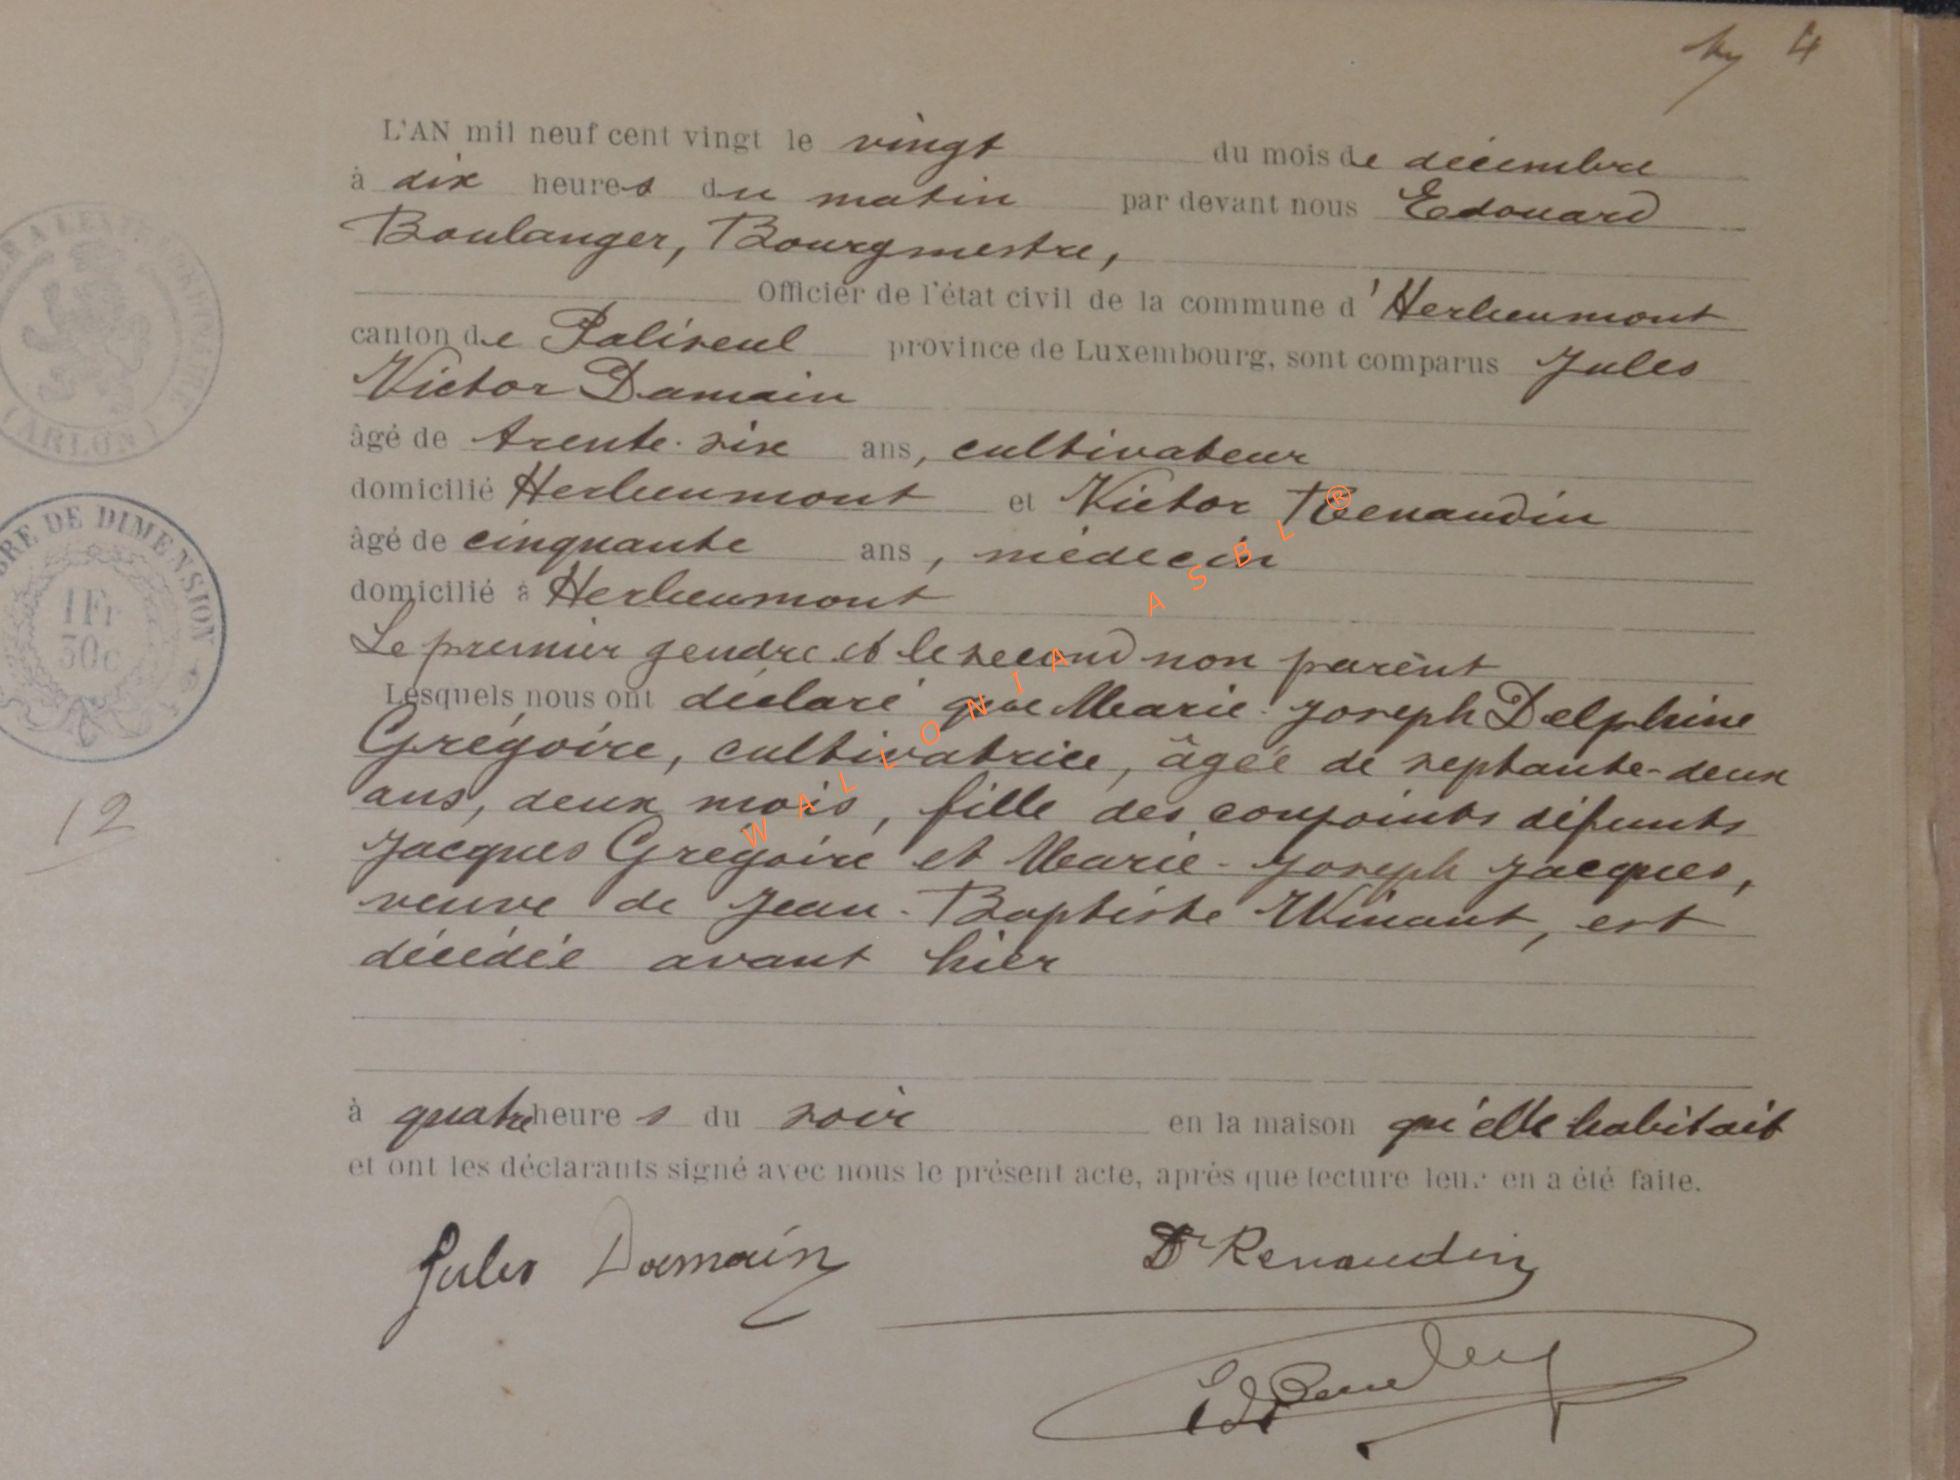 4
L'AN mil neuf cent vingt le vingt du mois de décembre
à dix heures du matin par devant nous Edouard
Boulanger, Bourgmestre,
Officier de l'état civil de la commune d'Herbeumont
canton de Paliseul province de Luxembourg, sont comparus Jules
Victor Damain
âgé de trente-six ans, cultivateur
domicilié Herbeumont et Victor Renaudin
âgé de cinquante ans, médecin
domicilié à Herbeumont
Le premier gendre et le second non parent
Lesquels nous ont déclaré que Marie-Joseph Delphine
Grégoire, cultivatrice, âgée de septante-deux
ans, deux mois, fille des conjoints défunts
Jacques Grégoire et Marie-Joseph Jacques,
veuve de Jean-Baptiste Winant, est
décédée avant hier
à quatre heures du soir en la maison qu'elle habitait
et ont les déclarants signé avec nous le présent acte, après que lecture leur en a été faite.
Jules Damain Dr Renaudin
WALLONIA ASBL ®
ARLON
DE DIMENSION
1 Fr
30c
12